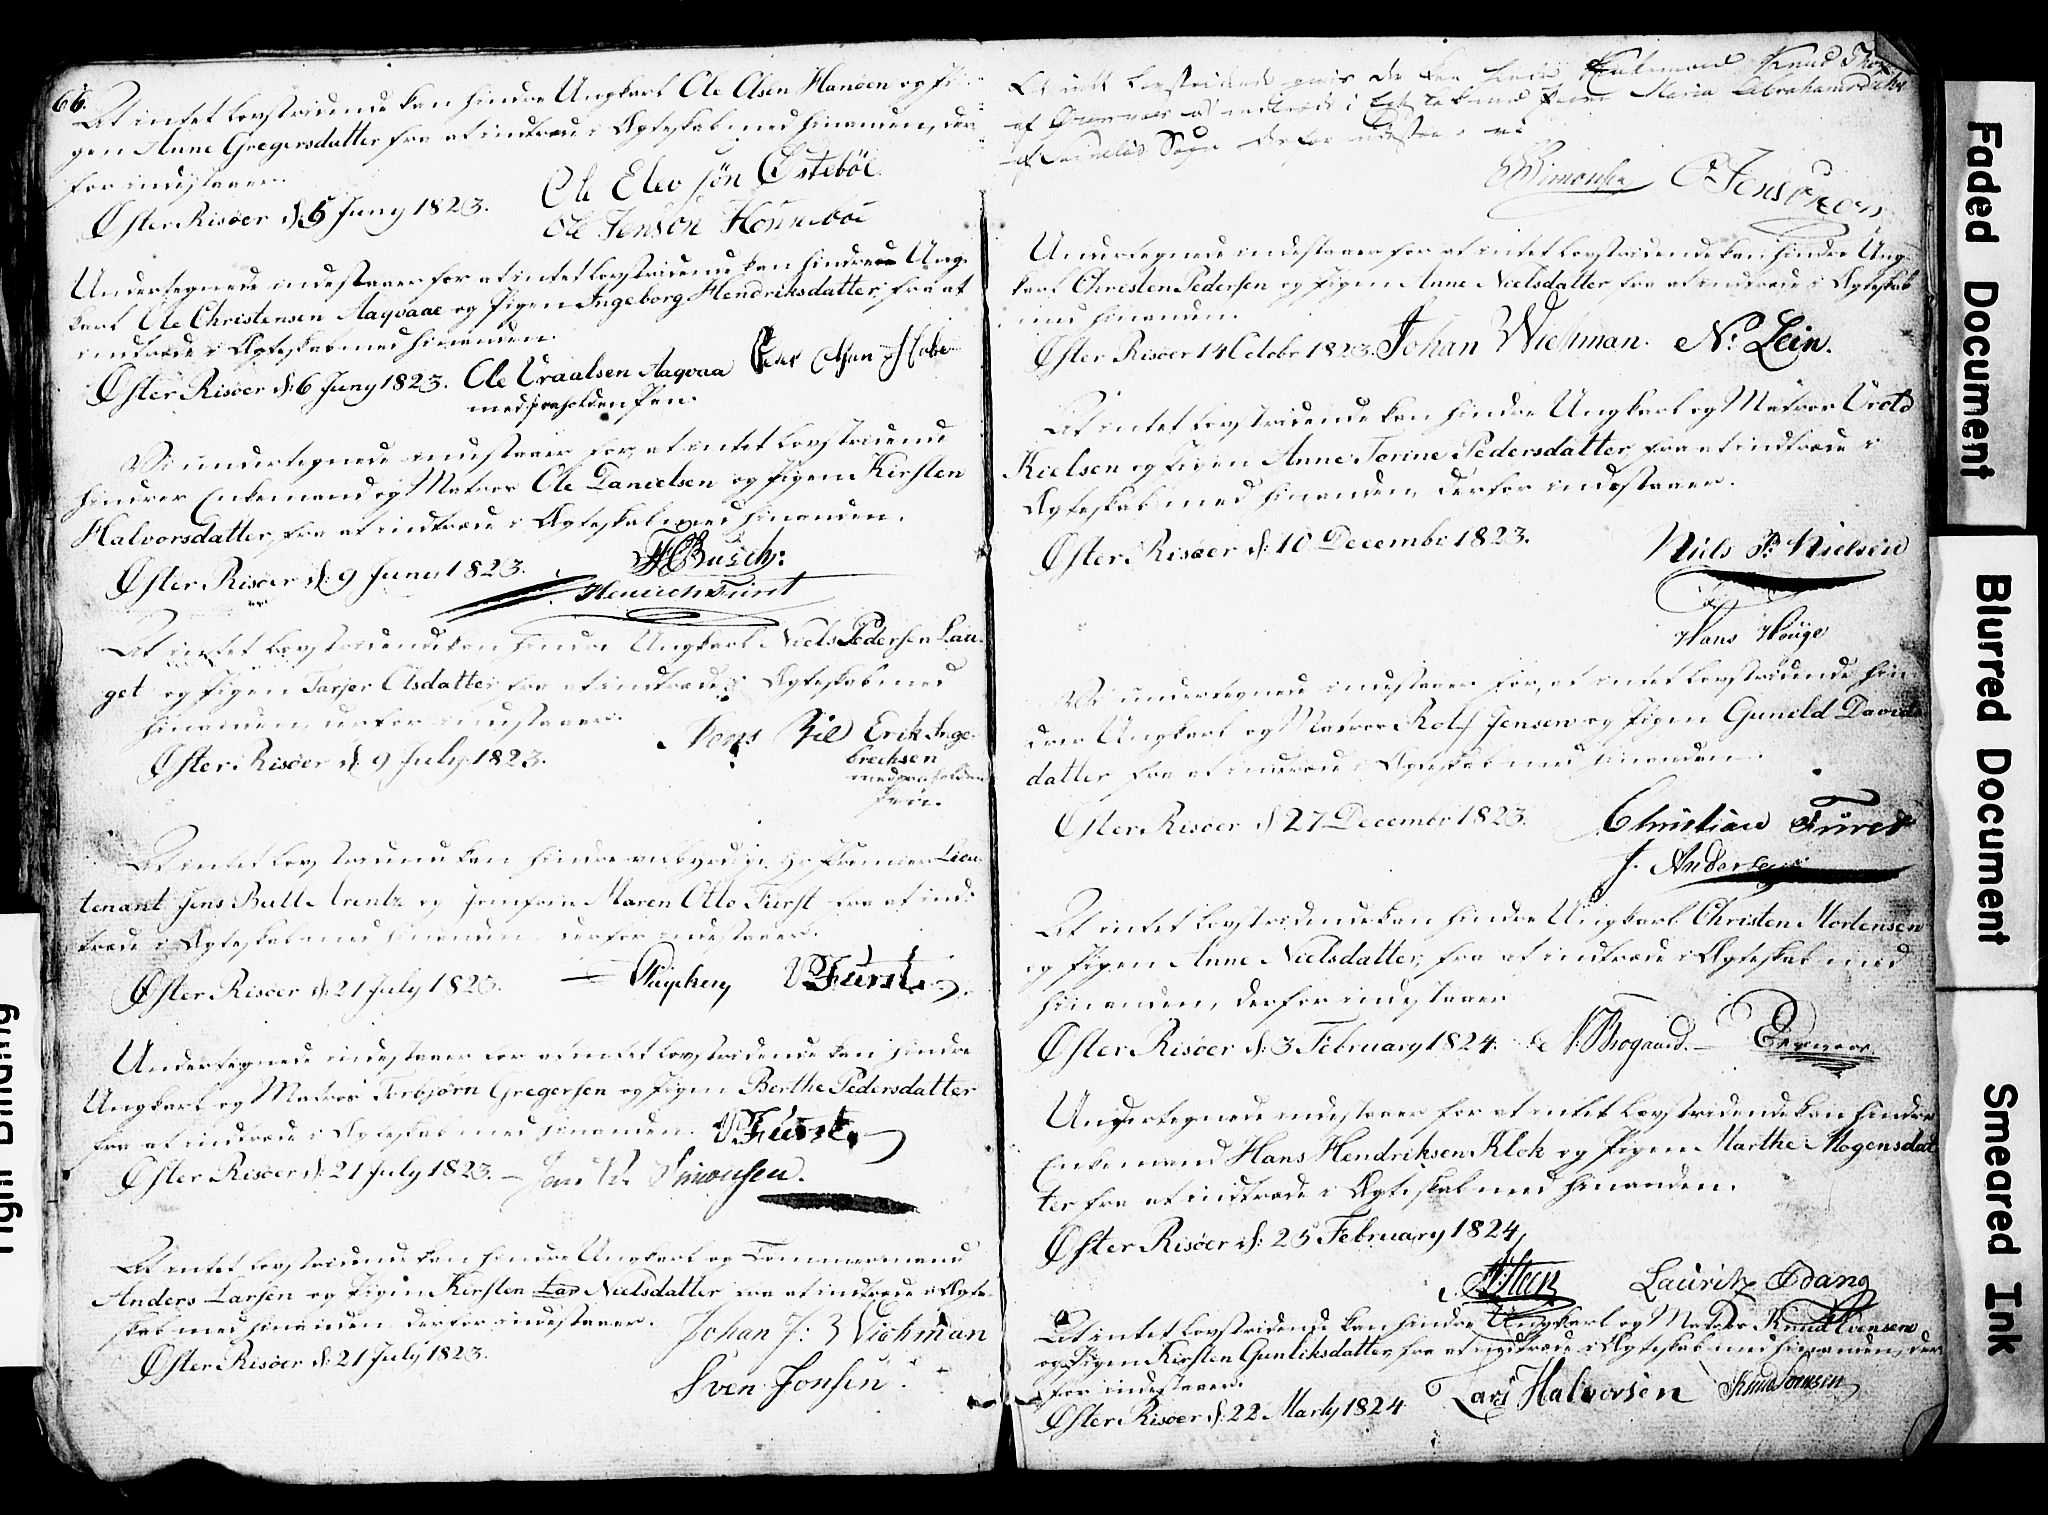 66.
At intet lovstridende kan hindre Ungkarl Ole Olsen Hanöen og Pi-
gen Anne Gregersdatter fra at indtræde i Ægteskab med hinanden, der
for indestaaer.
Øster Risøer d: 5 Juny 1823.
Ole Elev søn Østeböe
Ole Jensøn
Undertegnede indestaaer for at intet lovstridende kan hindre Ung-
karl Ole Christensen Aaqvaae og Pigen Ingeborg Hendriksdatter, fra at
indtræde i Ægteskab med hinanden.
Øster Risøer d: 6 Juny 1823.
Ole Uraalsen Aaqvaa
med paaholden Pen.
Vi undertegnede indestaaer for, at intet lovstridende
hindrer Enkemand og Matros Ole Danielsen og Pigen Kirsten
Halvorsdatter, fra at indtræde i Ægteskab med hinanden.
Øster Risøer d: 9 Juny 1823.
Busch:
Henrich Fürst
At intet lovstridende kan hindre Ungkarl Niels Pedersen Lau-
get og Pigen Tarjer Olsdatter fra at indtræde i Ægteskab med
hinanden, derfor indestaaer.
Øster Risøer d: 9 July 1823.
Erik Inge-
brecksen
med paaholden
Pen.
At intet lovstridende kan hindre Premier Lieu-
tenant Jens Bull Arentz og Jomfrue Maren Otto Fürst fra at ind-
træde i Ægteskab med hinanden derfor indestaaer.
Øster Risøer d: 21 July 1823.
Fürst
Undertegnede indestaaer for at intet lovstridende kan hindre
Ungkarl og Matros Torbjørn Gregersen og Pigen Berthe Pedersdatter
fra at indtræde i Ægteskab med hinanden.
Fürst
Øster Risøer d: 21 July 1823.
Simonsen.
At intet lovstridende kan hindre Ungkarl og Tømmermand
Anders Larsen og Pigen Kirsten Lar Nielsdatter fra at indtræde i Ægte-
skab med hinanden derfor indestaaer.
Øster Risøer d: 21 July 1823.
Johan J: Wichman
Sven Jonsen
At intet lovstridende Enkemand Knud
af at indtræde i Egteskab med Pigen Maria Abrahamsdatter
af Sogn derfor indestaar vi
Simonsen
Undertegnede indestaaer for at intet lovstridende kan hindre Ung-
karl Christen Pedersen og Pigen Anne Nielsdatter fra at indtræde i Ægteskab
med hinanden.
Øster Risøer 14 Octobr 1823.
Johan Wichman. Ns. Lein.
At intet lovstridende kan hindre Ungkarl og Matros Urold
Kielsen og Pigen Anne Torine Pedersdatter fra at indtræde i
Ægteskab med hinanden, derfor indestaaer.
Øster Risøer d: 10 Decembr 1823.
Niels P: Nielsen
Hans Houge
Vi undertegnede indestaaer for, at intet lovstridende hin-
drer Ungkarl og Matros Rolf Jensen og Pigen Gunild Davids
datter fra at indtræde i Ægteskab med hinanden.
Øster Risøer d 27 Decembr 1823.
Christian Fürst
J. Andersen
At intet lovstridende kan hindre Ungkarl Christen Mortensen
og Pigen Anne Nielsdatter, fra at indtræde i Ægteskab med
hinanden, derfor indestaaer
Øster Risøer d: 3 February 1824.
Undertegnede indestaaer for at intet lovstridende kan hindre
Enkemand Hans Hendriksen Klok og Pigen Marthe Mogensdat
ter fra at indtræde i Ægteskab med hinanden.
Øster Risøer d: 25 February 1824,
Steen Lauritz Ødang
At intet lovstridende kan hindre Ungkarl og Matros Knud Evensen
og Pigen Kirsten Gunliksdatter, fra at indtræde i Ægteskab med hinanden, der
for indestaaer.
Øster Risøer d: 22 Marty 1824
Lars Halvorsen
Faded Document
Blurred Document
Smeared Ink
Tight Binding